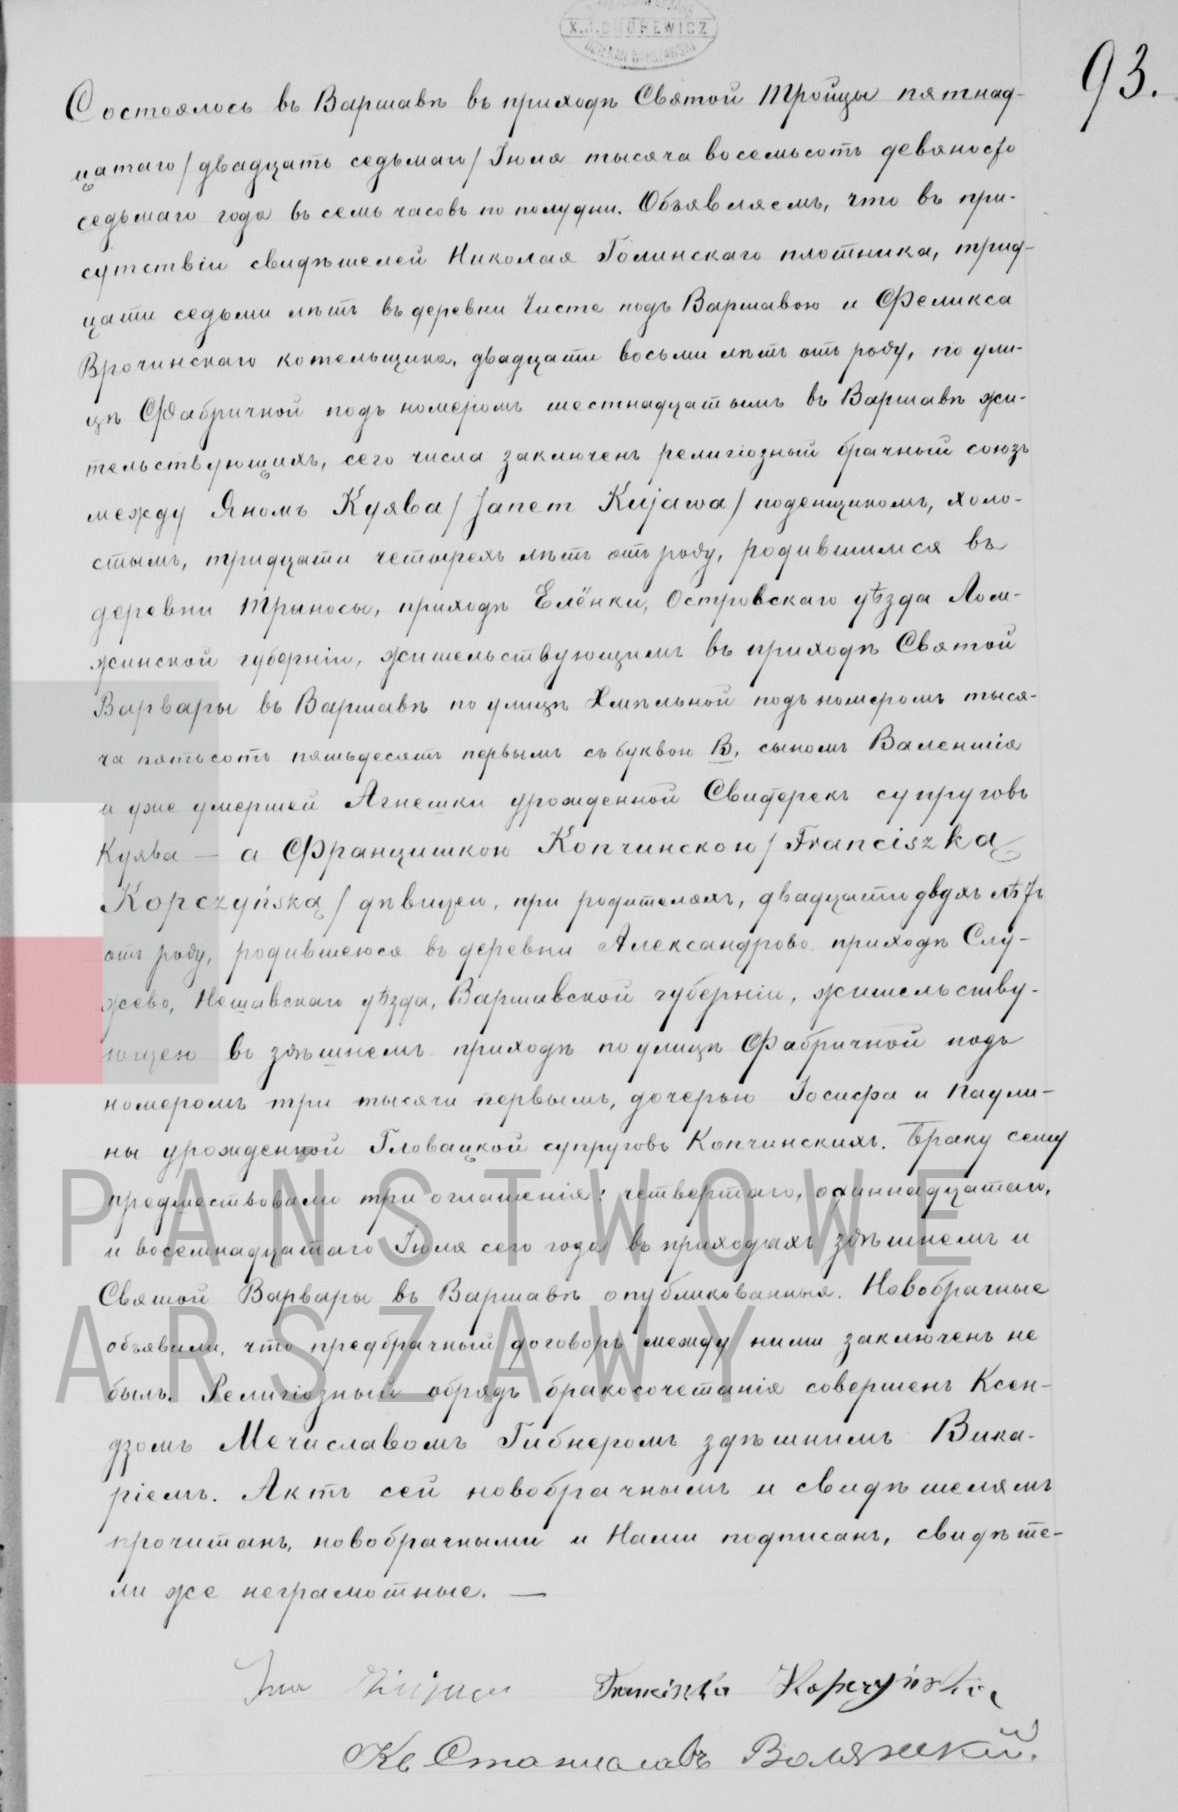 X.J. DHUREWICZ
93.
Состоялось въ Варшавѣ въ приходѣ Святой Тройцы пятнад-
цатаго /двадцать седьмаго/ Іюля тысяча восемьсотъ девяносто
седьмаго года въ семь часовъ по полудни. Объявляемъ, что въ при-
сутствіи свидѣтелей Николая Голинскаго плотника, трид-
цати седьми лѣтъ въ деревни Чисте подъ Варшавою и Феликса
Врочинскаго котельщика, двадцати восьми лѣтъ отъ роду, по ули-
цѣ Фабричной подъ номеромъ шестнадцатымъ въ Варшавѣ жи-
тельствующихъ, сего числа заключенъ религіозный брачный союзъ
между Яномъ Куява /Janem Kujawa/ поденщикомъ, холо-
стымъ, тридцати четырехъ лѣтъ отъ роду, родившимся въ
деревни Трыносы, приходѣ Елёнки, Островскаго уѣзда Лом-
жинской губерніи, жительствующимъ въ приходѣ Святой
Варвары въ Варшавѣ по улицѣ Хмѣльной подъ номеромъ тыся-
ча пятьсотъ пятьдесятъ первымъ съ буквою В, сыномъ Валентія
и уже умершей Агнешки урожденной Свидерекъ супруговъ
Куява — а Францишкою Копчинскою /Franciszką
Kopczyńską/ дѣвицею, при родителяхъ, двадцати двухъ лѣтъ
отъ роду, родившеюся въ деревни Александрово приходѣ Слу-
жево, Нешавскаго уѣзда, Варшавской губерніи, жительству-
ющею въ здѣшнемъ приходѣ по улицѣ Фабричной подъ
номеромъ три тысячи первымъ, дочерью Іосифа и Паули-
ны урожденной Гловацкой супруговъ Копчинскихъ. Браку сему
предшествовали три оглашенія: четвертаго, одиннадцатаго,
и восемнадцатаго Іюля сего года въ приходахъ здѣшнемъ и
Святой Варвары въ Варшавѣ опубликованныя. Новобрачные
объявили, что предбрачный договоръ между ними заключенъ не
былъ. Религіозный обрядъ бракосочетанія совершенъ Ксен-
дзомъ Мечиславомъ Гибнеромъ здѣшнимъ Вика-
ріемъ. Актъ сей новобрачнымъ и свидѣтелямъ
прочитанъ, новобрачными и Нами подписанъ, свидѣте-
ли же неграмотные. —
Jan Kujawa Franciszka Kopczyńska
Кс Станиславъ Волянскій.
PAŃSTWOWE
ARSZAWY